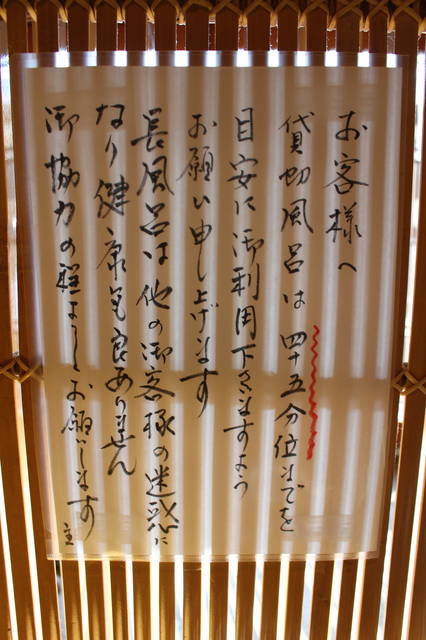 お客様へ
貸切風呂は四十五分位までを
目安に御利用下さいますよう
お願い申し上げます
長風呂は他の御客様の迷惑に
なり健康も良ありません
御協力の程よしお願いします
主